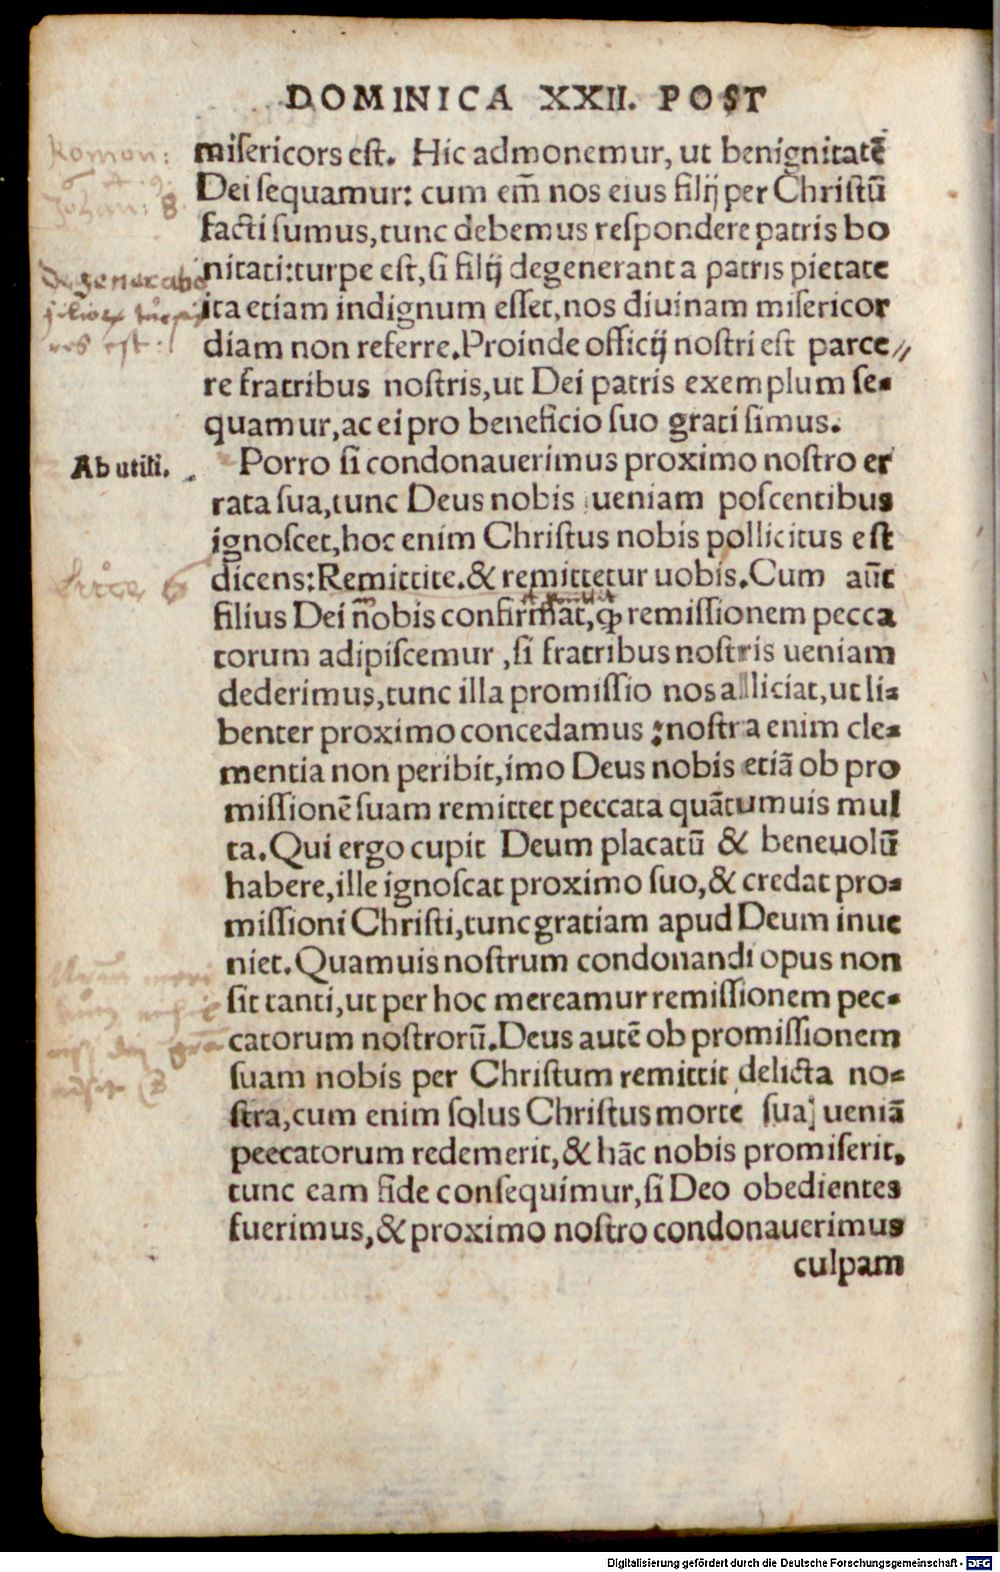 DOMINICA XXII. POST
misericors est. Hic admonemur, ut benignitatē
Dei sequamur: cum em̄ nos eius filij per Christū
facti sumus, tunc debemus respondere patris bo
nitati: turpe est, si filij degenerant a patris pietate
ita etiam indignum esset, nos diuinam misericor
diam non referre. Proinde officij nostri est parce//
re fratribus nostris, ut Dei patris exemplum se-
quamur, ac ei pro beneficio suo grati simus.
Ab utili.
Porro si condonauerimus proximo nostro er
rata sua, tunc Deus nobis ueniam poscentibus
ignoscet, hoc enim Christus nobis pollicitus est
dicens: Remittite. & remittetur uobis. Cum aūt
filius Dei nobis confirmat, ꝙ remissionem pecca
torum adipiscemur, si fratribus nostris ueniam
dederimus, tunc illa promissio nos alliciat, ut li-
benter proximo concedamus: nostra enim cle-
mentia non peribit, imo Deus nobis etiā ob pro
missionē suam remittet peccata quātumuis mul
ta. Qui ergo cupit Deum placatū & beneuolū
habere, ille ignoscat proximo suo, & credat pro-
missioni Christi, tunc gratiam apud Deum inue
niet. Quamuis nostrum condonandi opus non
sit tanti, ut per hoc mereamur remissionem pec-
catorum nostrorū. Deus autē ob promissionem
suam nobis per Christum remittit delicta no-
stra, cum enim solus Christus morte sua ueniā
peecatorum redemerit, & hāc nobis promiserit,
tunc eam fide consequimur, si Deo obedientes
fuerimus, & proximo nostro condonauerimus
culpam
Roman:
Johan: 8.
est:
Luce 6
Digitalisierung gefördert durch die Deutsche Forschungsgemeinschaft - DFG